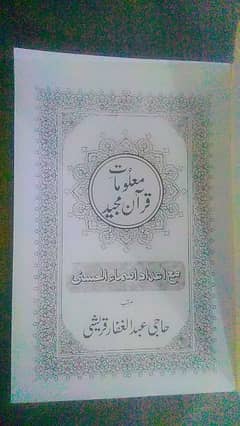 معلومات
قرآن مجید
مع اعداد اسماء الحسنیٰ
مرتب
حاجی عبدالغفار قریشی